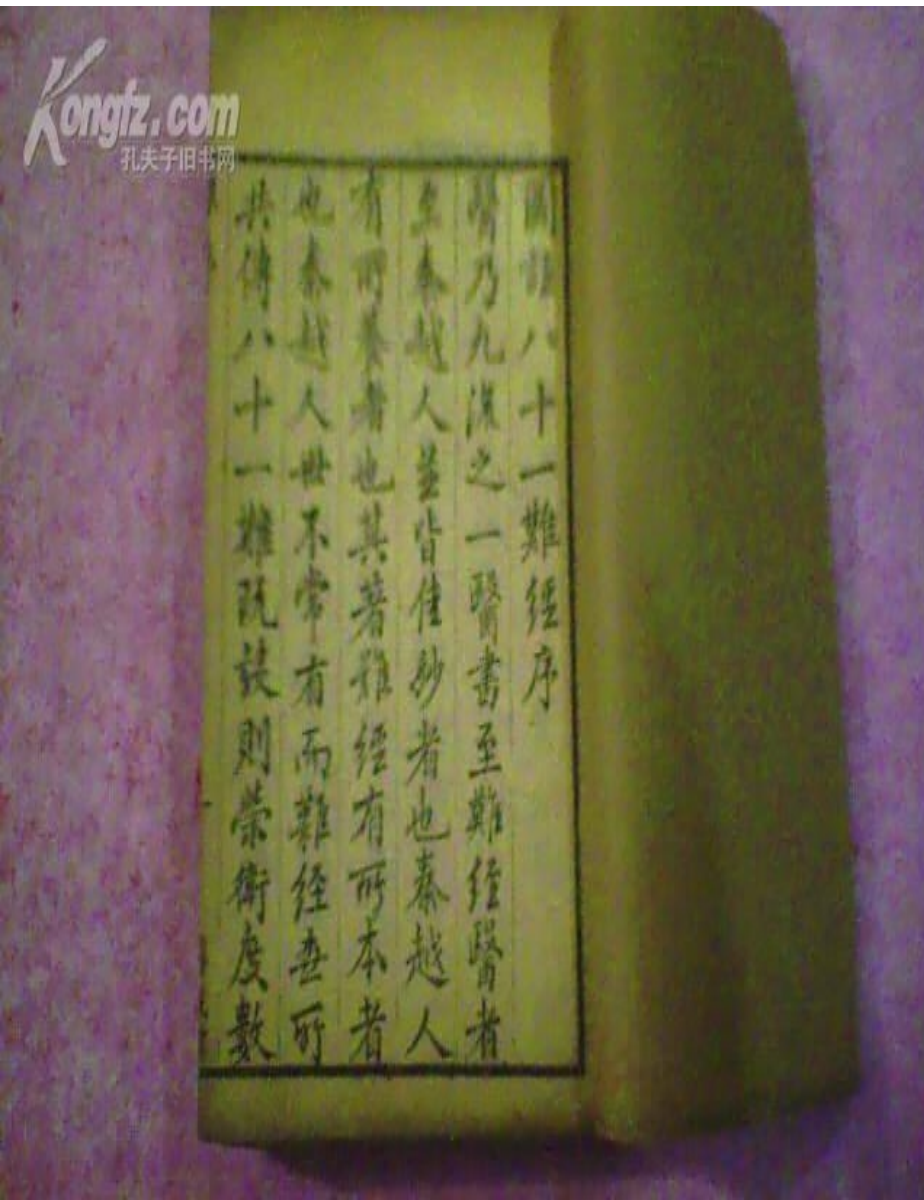 Kongfz.com
孔夫子旧书网
圖註八十一難經序
醫乃九流之一醫書至難經醫者
至秦越人並皆佳妙者也秦越人
有所養者也其著難經有所本者
也秦越人世不常有而難經無所
共傳八十一難既
則榮衛度數